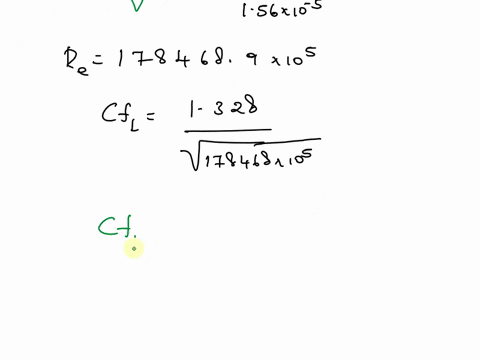 1.56×10^-5
Re = 178468.9 ×10^5
CfL = 1.328
√178468×10^5
Cf.